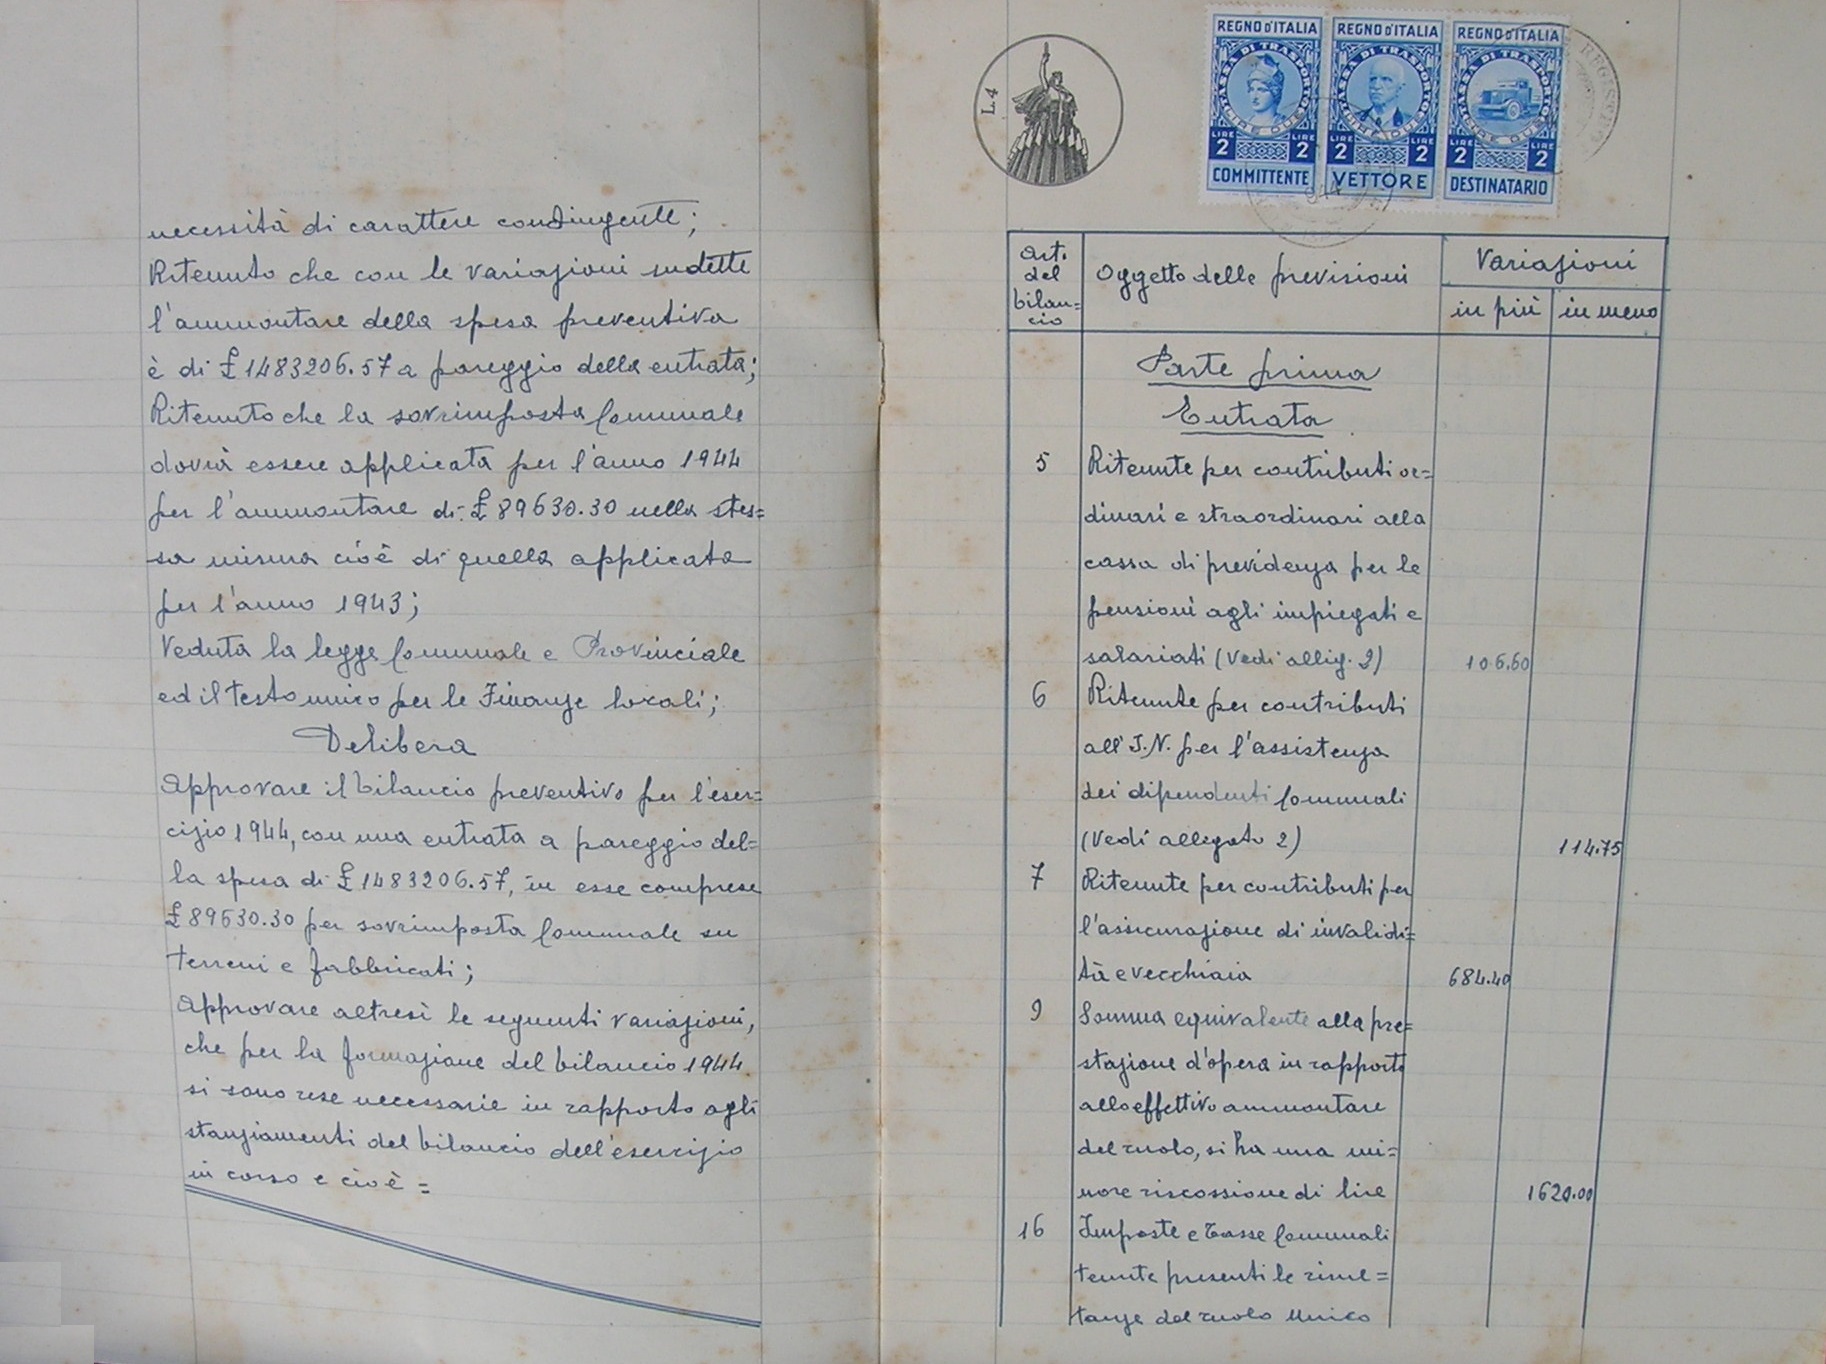 necessità di carattere contingente;
Ritenuto che con le variazioni sudette
l'ammontare della spesa preventiva
è di £1483206.57 a pareggio della entrata;
Ritenuto che la sovrimposta Comunale
dovrà essere applicata per l'anno 1944
per l'ammontare di £89630.30 nella stes=
sa misura cioè di quella applicata
per l'anno 1943;
Veduta la legge Comunale e Provinciale
ed il testo unico per le Finanze locali;
Delibera
Approvare il bilancio preventivo per l'eser=
cizio 1944, con una entrata a pareggio del=
la spesa di £1483206.57, in esse comprese
£89630.30 per sovrimposta Comunale su
terreni e fabbricati;
Approvare altresì le seguenti variazioni,
che per la formazione del bilancio 1944
si sono rese necessarie in rapporto agli
stanziamenti del bilancio dell'esercizio
in corso e cioè =
L.4
REGNO D'ITALIA REGNO D'ITALIA REGNO D'ITALIA
TASSA DI TRASPORTO TASSA DI TRASPORTO TASSA DI TRASPORTO
LIRE DUE LIRE DUE LIRE DUE
LIRE LIRE LIRE LIRE LIRE LIRE
2 2 2 2 2 2
COMMITTENTE VETTORE DESTINATARIO
REGISTRO
Art. del bilan=cio Oggetto delle previsioni Variazioni
in più in meno
Parte prima
Entrata
5 Ritenute per contributi or=
dinari e straordinari alla
cassa di previdenza per le
pensioni agli impiegati e
salariati (Vedi alleg. 2) 106.60
6 Ritenute per contributi
all'I.N. per l'assistenza
dei dipendenti Comunali
(Vedi allegato 2) 114.75
7 Ritenute per contributi per
l'assicurazione di invalidi=
tà e vecchiaia 684.40
9 Somma equivalente alla pre=
stazione d'opera in rapporto
allo effettivo ammontare
del ruolo, si ha una mi=
nore riscossione di lire 1620.00
16 Imposte e Tasse Comunali
tenute presenti le risul=
tanze del ruolo Unico